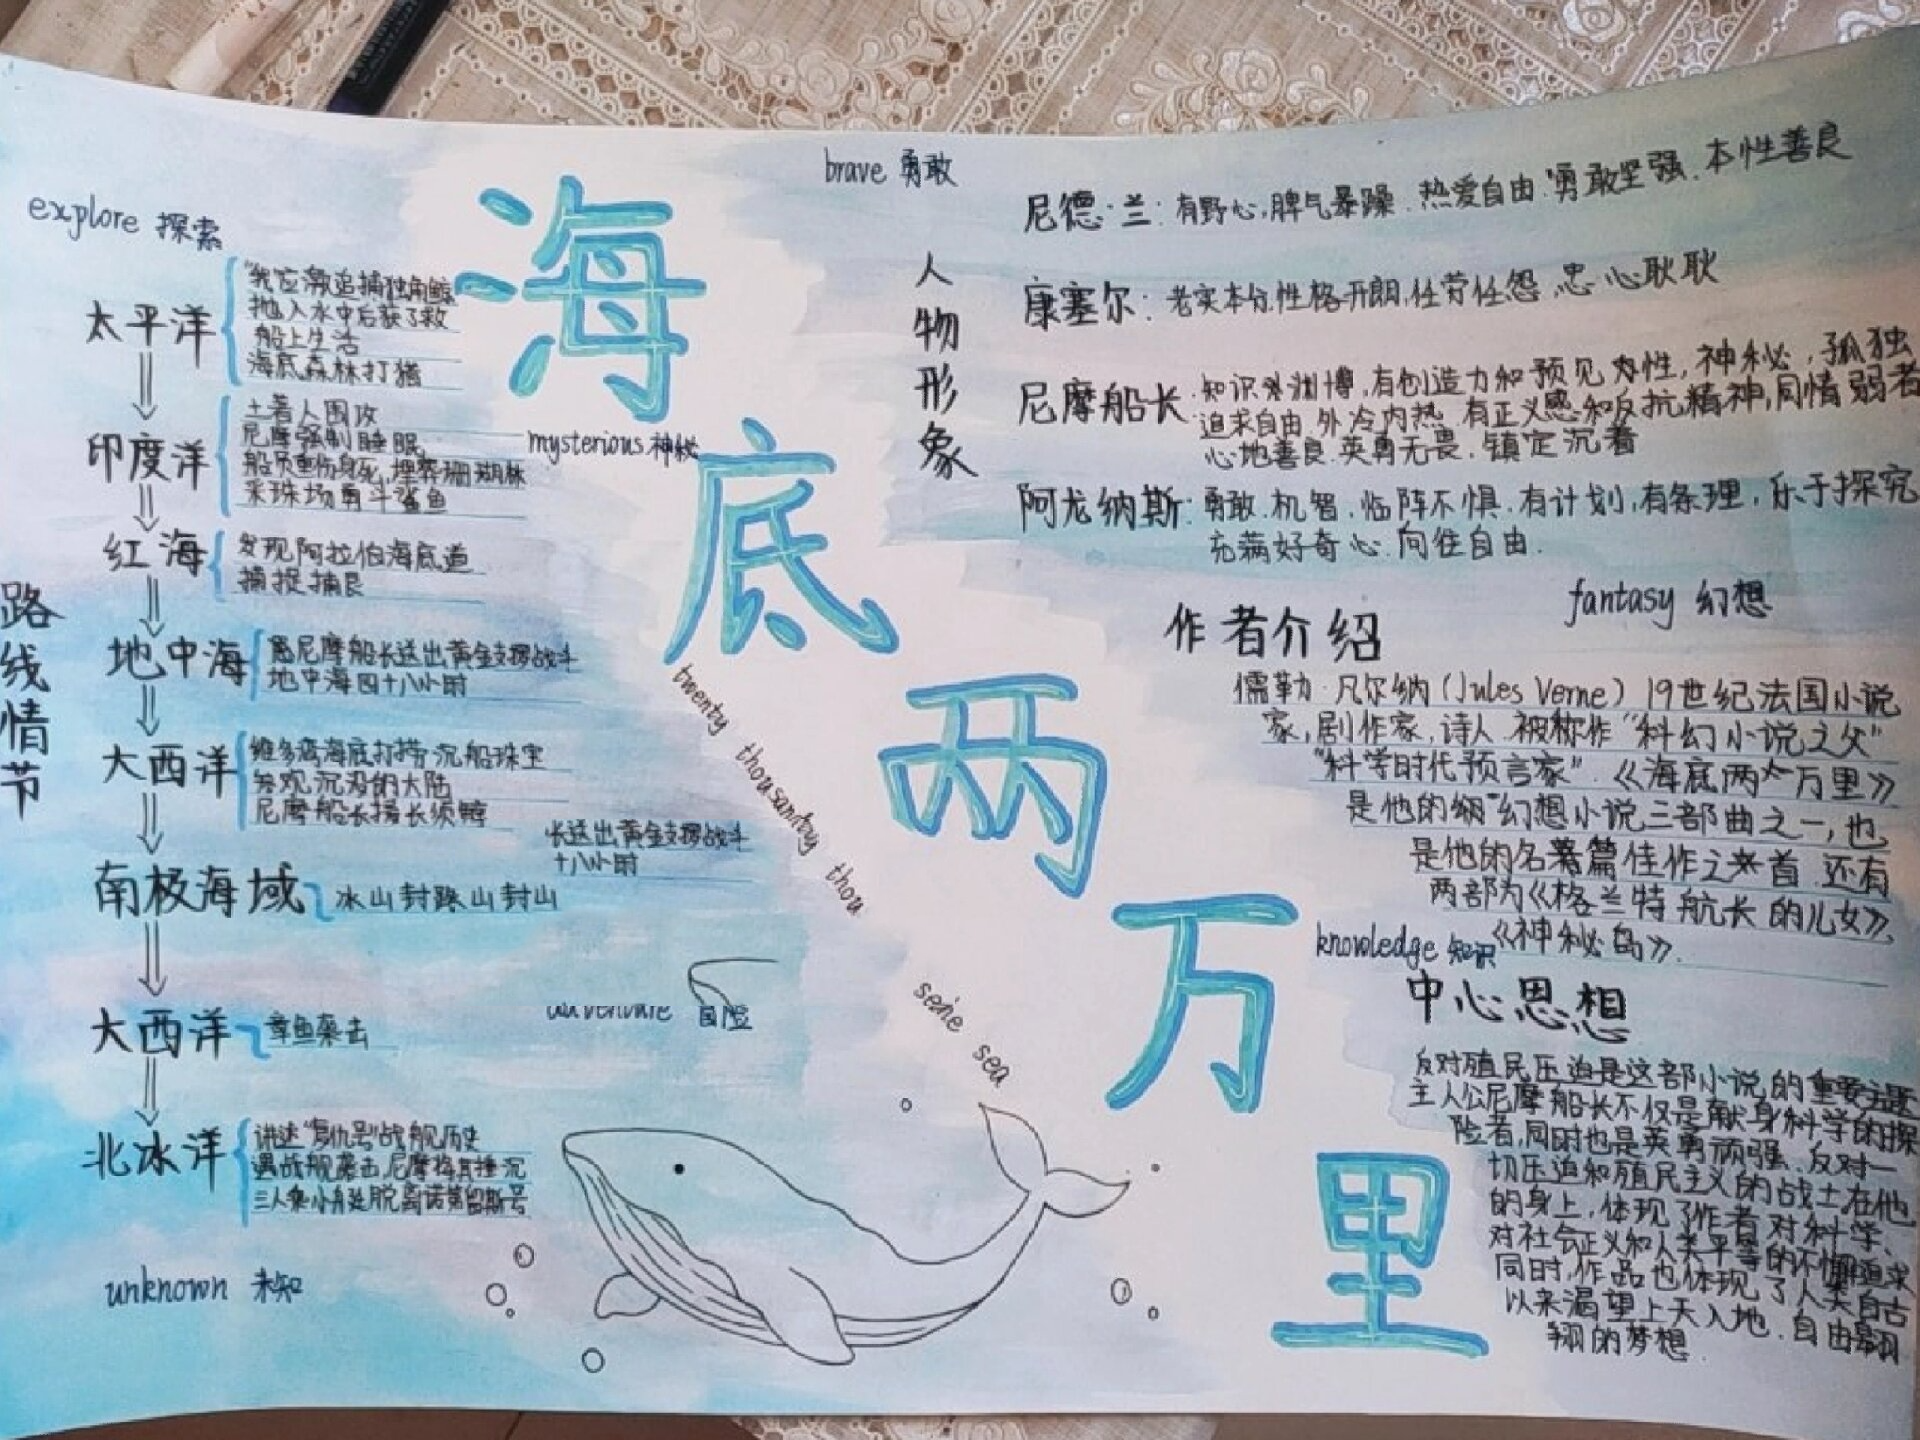 explore 探索
路线情节
太平洋
我应邀追捕独角鲸
抛入水中后获了救
船上生活
海底森林打猎
印度洋
土著人围攻
尼摩强制睡眠
船员重伤身死,埋葬珊瑚林
采珠场勇斗鲨鱼
红海
发现阿拉伯海底道
捕捉捕艮
地中海
尼摩船长送出黄金支撑战斗
地中海四十八小时
大西洋
维多湾海底打捞沉船珠宝
参观沉没的大陆
尼摩船长援长须鲸
长送出黄金支撑战斗
十八小时
南极海域
冰山封路山封山
大西洋
章鱼袭击
北冰洋
讲述"复仇号"战舰历史
遇战舰袭击,尼摩将其撞沉
三人乘小舟逃脱离诺第留斯号
unknown 未知
海底两万里
mysterious 神秘
twenty thousantby thou
seine sea
冒险
brave 勇敢
人物形象
尼德·兰:有野心,脾气暴躁.热爱自由.勇敢坚强.本性善良
康塞尔:老实本分,性格开朗,任劳任怨,忠心耿耿
尼摩船长:知识渊博,有创造力和预见性,神秘,孤独
追求自由.外冷内热.有正义感和反抗精神,同情弱者
心地善良.英勇无畏.镇定沉着
阿龙纳斯:勇敢.机智.临阵不惧.有计划,有条理,乐于探究
充满好奇心.向往自由.
fantasy 幻想
作者介绍
儒勒·凡尔纳(Jules Verne)19世纪法国小说
家,剧作家,诗人.被称作"科幻小说之父"
"科学时代预言家".《海底两万里》
是他的"幻想小说三部曲之一,也
是他的名著篇佳作之首.还有
两部为《格兰特船长的儿女》,
《神秘岛》.
knowledge 知识
中心思想
反对殖民压迫是这部小说的重要主题
主人公尼摩船长不仅是献身科学的探
险者,同时也是英勇顽强、反对一
切压迫和殖民主义的战士,在他
的身上,体现了作者对科学、
对社会正义和人类平等的不懈追求
同时,作品也体现了人类自古
以来渴望上天入地.自由翱
翔的梦想.